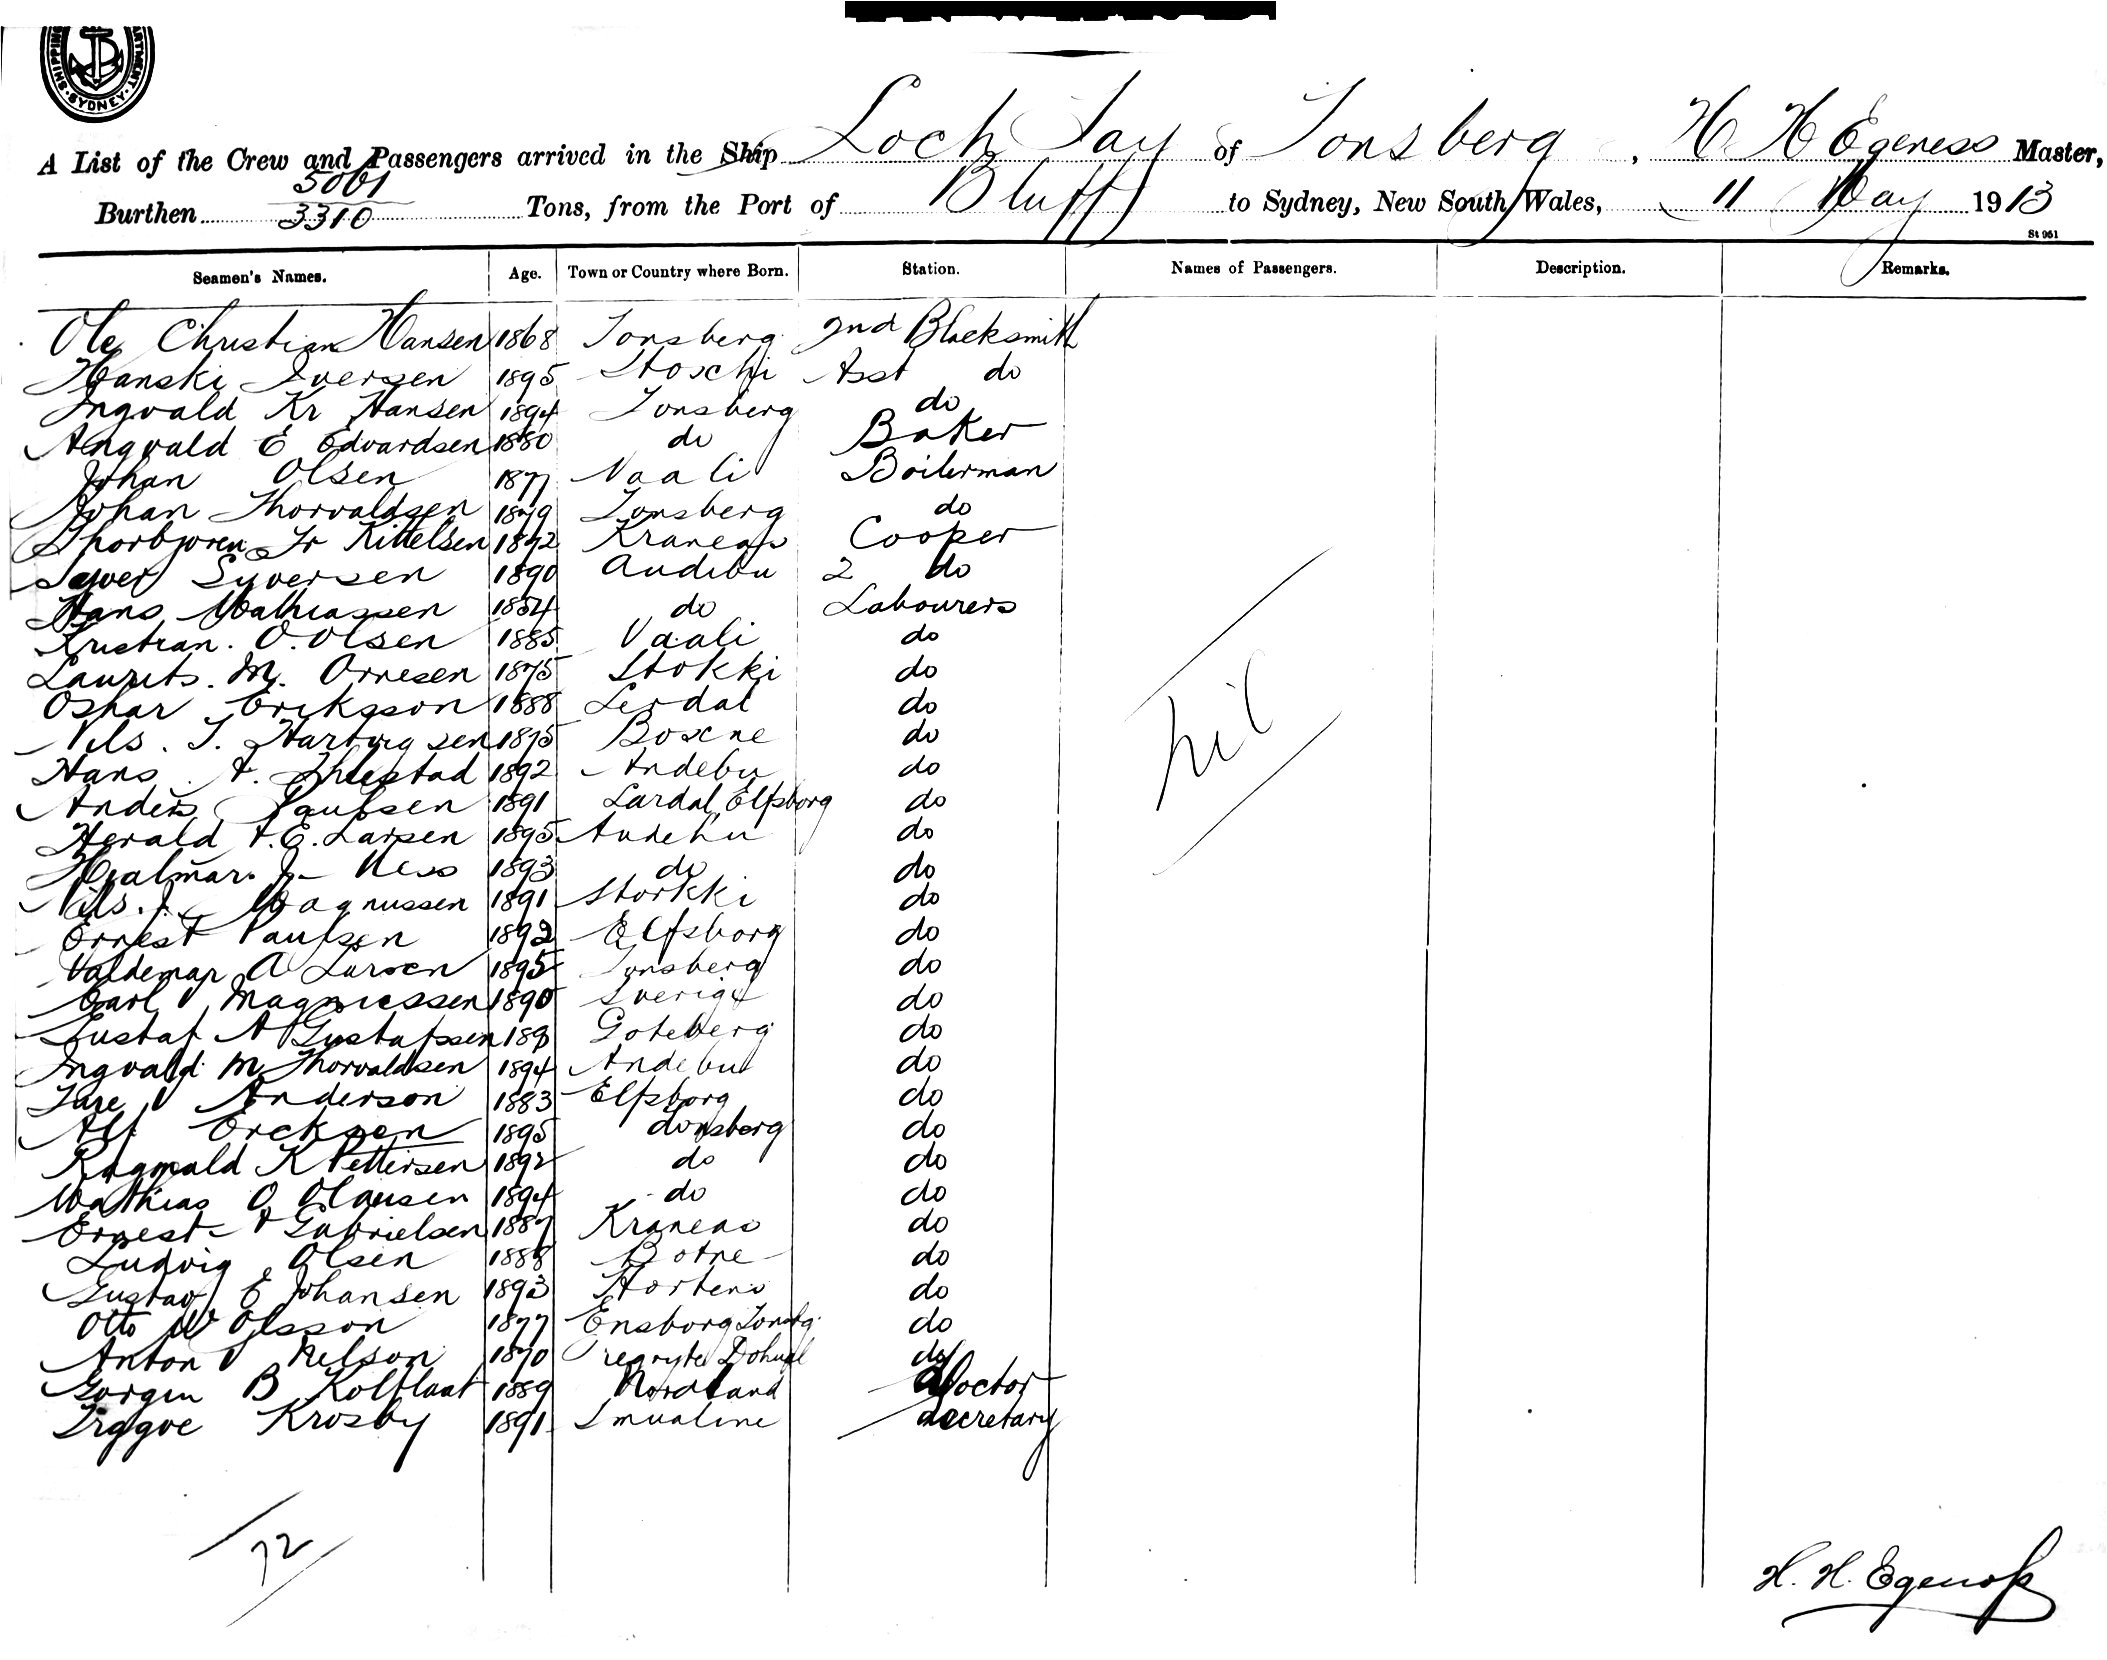 SHIPPING DEPARTMENT SYDNEY
A List of the Crew and Passengers arrived in the Ship Loch Tay of Tonsberg, H H Egeness Master,
Burthen 5061 / 3310 Tons, from the Port of Bluff to Sydney, New South Wales, 11 May 1913
St 961
Seamen's Names. Age. Town or Country where Born. Station. Names of Passengers. Description. Remarks.
Ole Christian Hansen 1868 Tonsberg 2nd Blacksmith
Hanski Iversen 1895 Stoschi Asst do
Ingvald Kr Hansen 1894 Tonsberg do
Angvald E Edvardsen 1880 do Baker
Johan Olsen 1877 Vaali Boilerman
Johan Thorvaldsen 1879 Tonsberg do
Thorbjoren Fr Kittelsen 1892 Kraneas Cooper
Syver Syversen 1890 Andebu 2 do
Hans Mathiassen 1854 do Labourers
Kristian. O. Olsen 1885 Vaali do
Laurits. M. Orresen 1875 Stokki do
Oskar Eriksson 1888 Lerdal do
Nils. J. Hartvigsen 1875 Boscne do
Hans. A. 1892 Andebu do
Anders Paulsen 1891 Lardal, Elfsborg do
Herald A. E. Larsen 1895 Andebu do
Hjalmar. J. Ness 1893 do do
Nils. J. Magnussen 1891 Storkki do
Ernest Paulsen 1892 Elfsborg do
Valdemar A Larsen 1895 Tonsberg do
Carl Magnussen 1890 Sverige do
Gustaf A Gustafssen 189 Goteberg do
Ingvald M Thorvaldsen 1894 Andebu do
Tare Anderson 1883 Elfsborg do
Alf Ercksen 1895 donsberg do
Ragnvald K Pettersen 1892 do do
Mathias O Olausen 1894 do do
Ernest A Gabrielsen 1887 Kraneas do
Ludvig Olsen 1888 Botne do
Gustav E Johansen 1893 Hortens do
Otto W Olsson 1877 Ensborg Tonsbg. do
Anton Nelson 1870 do
Gorgin B Kolflaat 1889 Nordland Doctor
Trggve Krosby 1891 Smualine Secretary
nil
72
H. H. Egeness